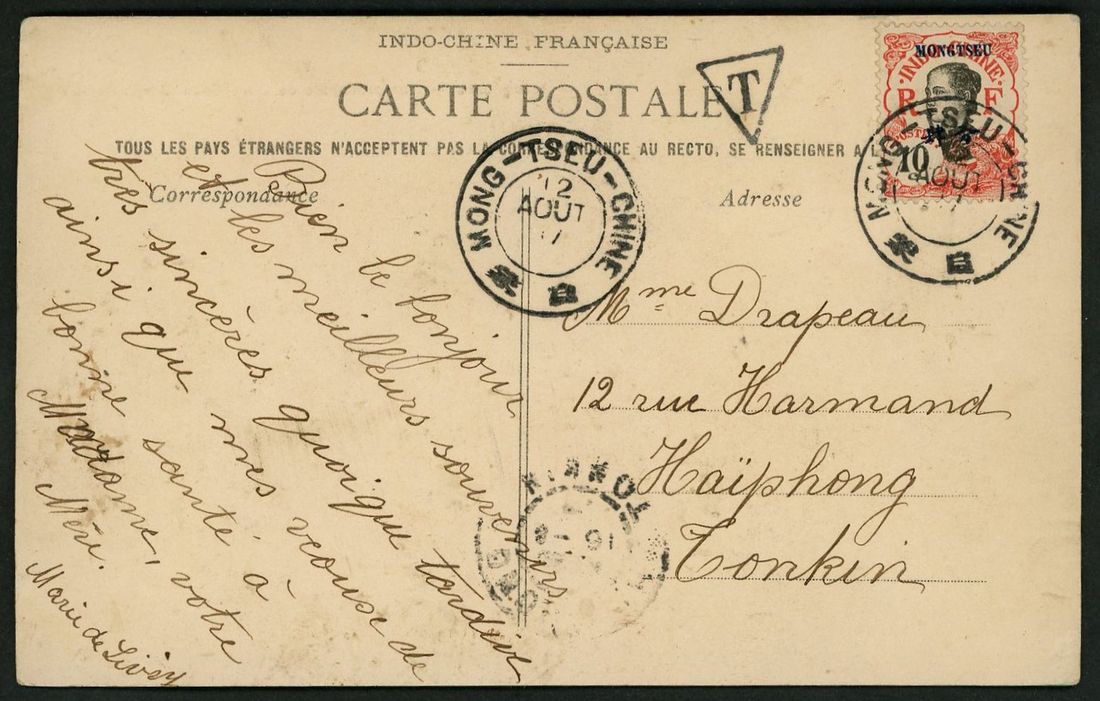 INDO-CHINE FRANÇAISE
CARTE POSTALE
T
MONGTSEU
INDO-CHINE
R F
10
TOUS LES PAYS ÉTRANGERS N'ACCEPTENT PAS LA CORRESPONDANCE AU RECTO, SE RENSEIGNER A L
Correspondance
Adresse
MONG-TSEU-CHINE
12
AOUT
MONG-TSEU-CHINE
AOUT
Rien le bonjour
et les meilleurs souvenirs
très sincères quoique tardive
ainsi que mes veouse de
bonne santé à
Madame, votre
Mère.
Marie de
Mme Drapeau
12 rue Harmand
Haïphong
Tonkin